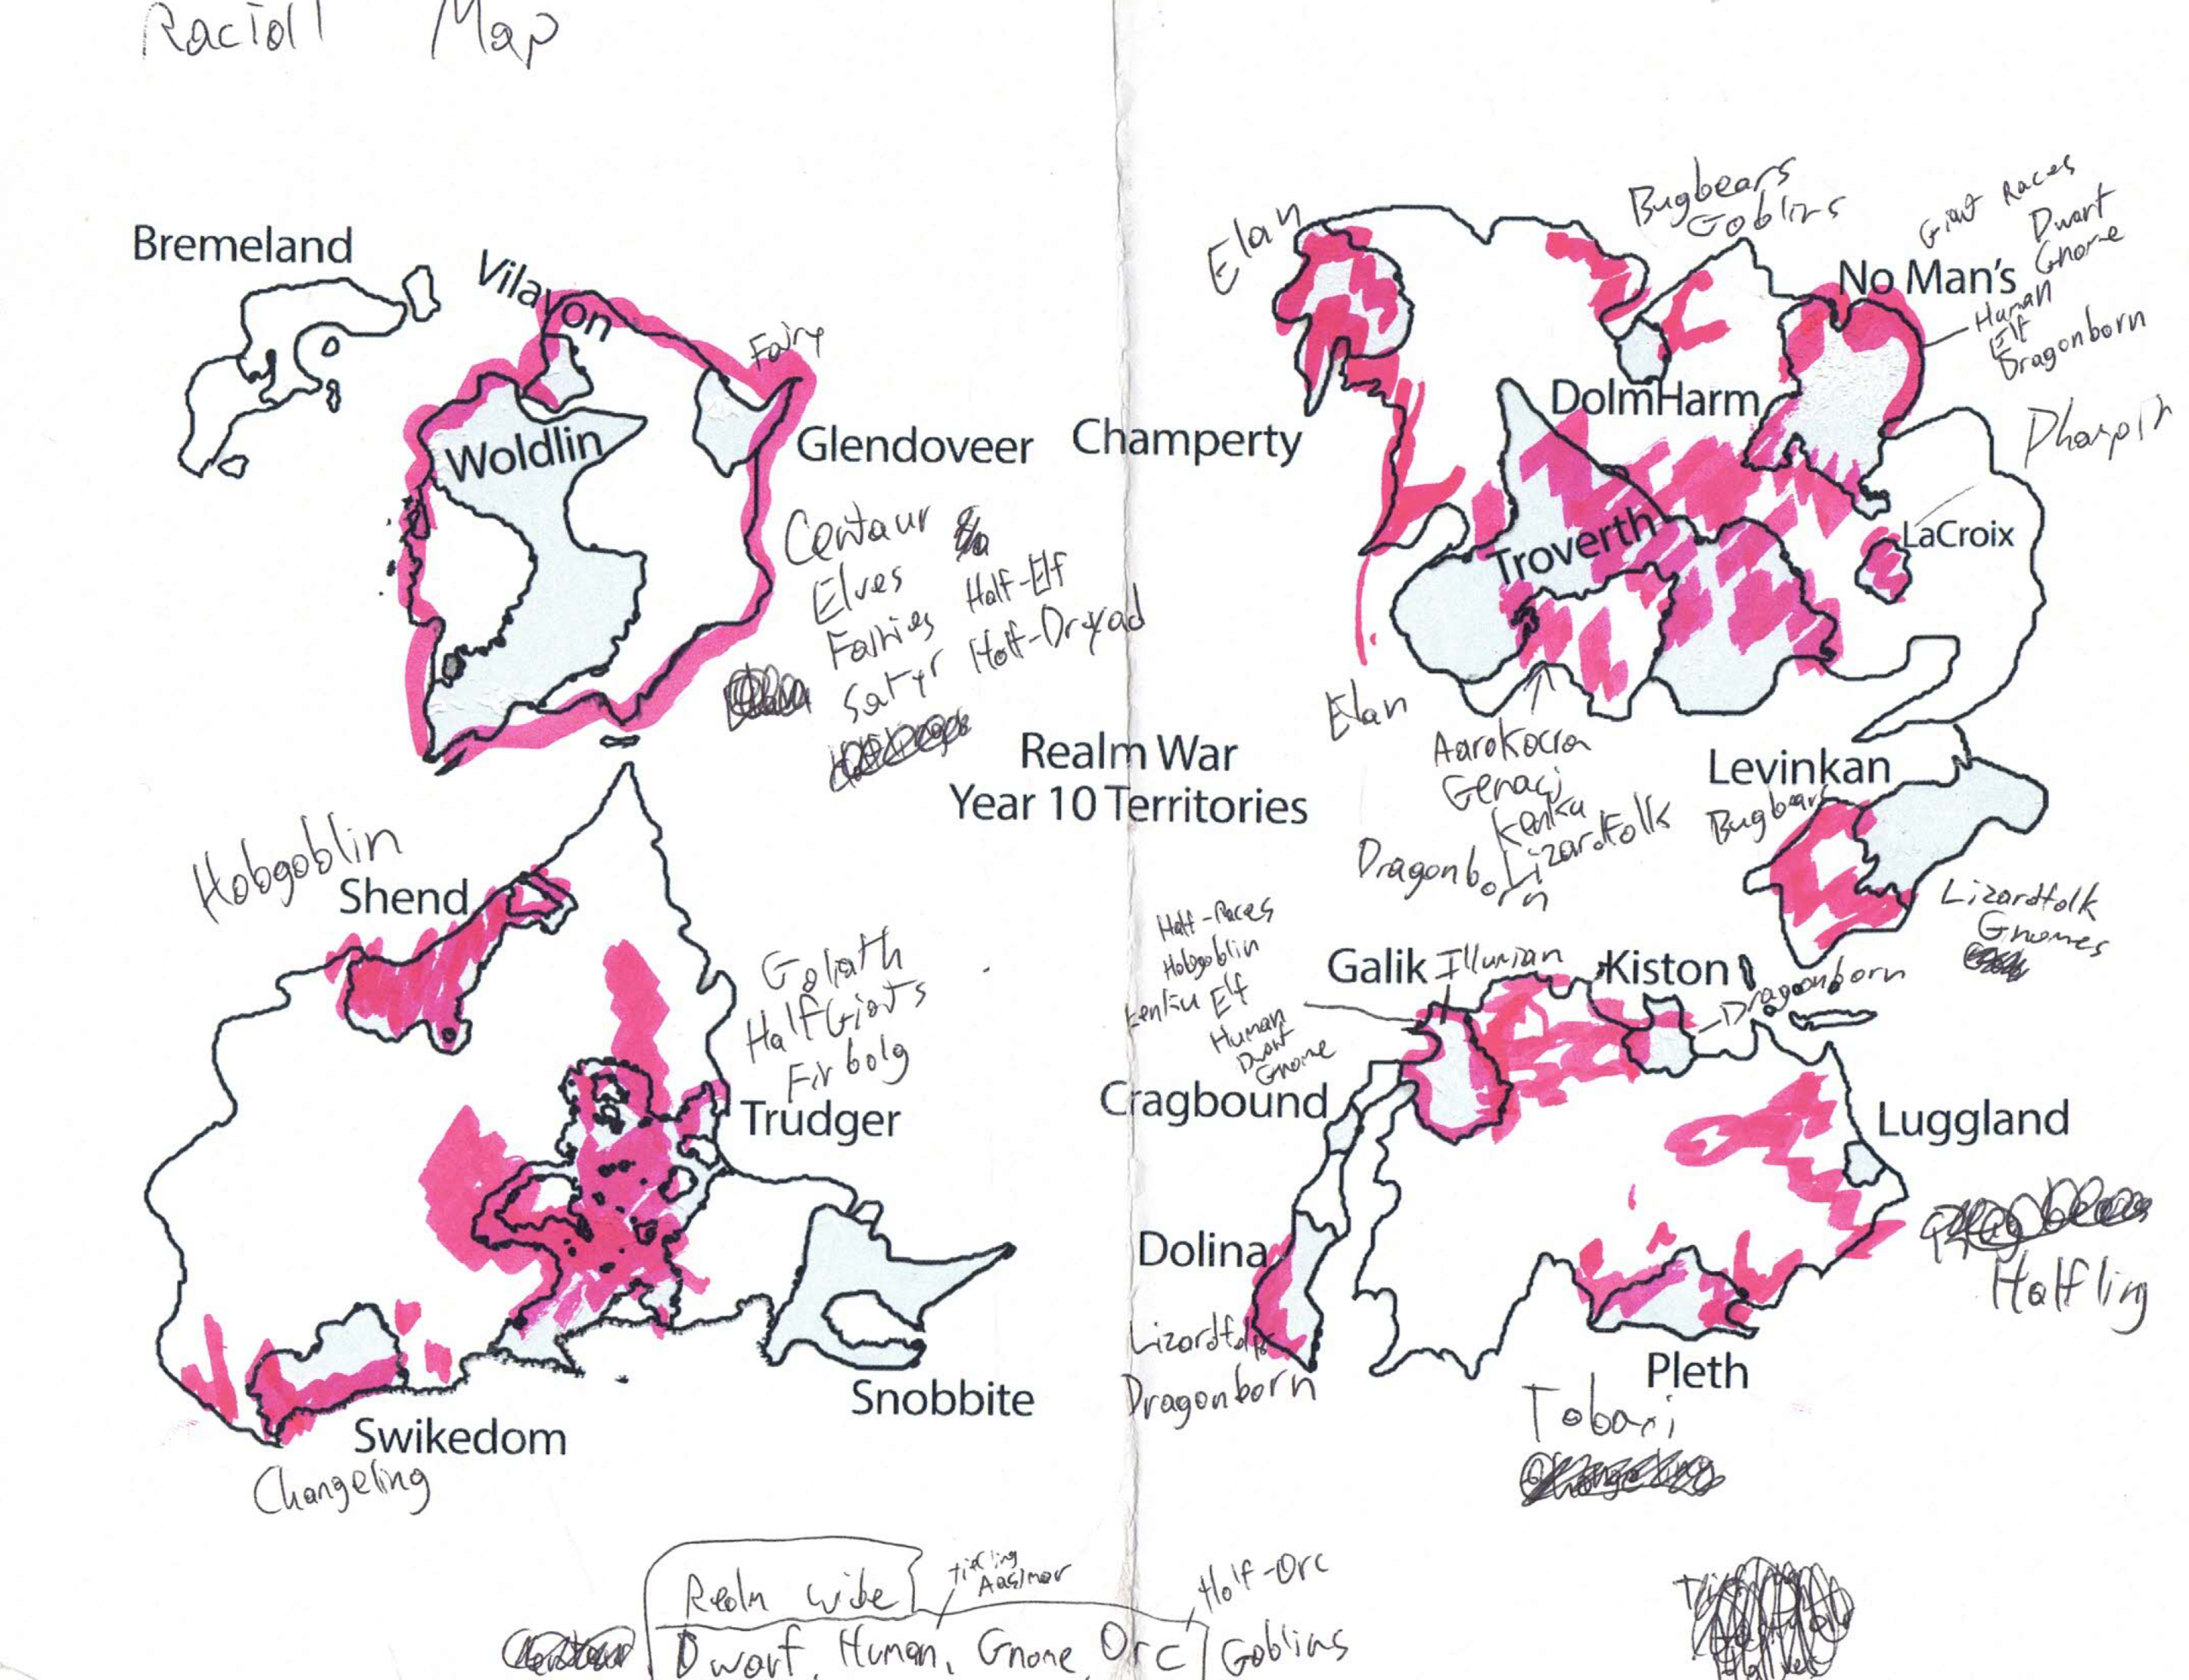 Map
Bremeland
Vilavon
Fairy
Woldlin
Glendoveer
Centaur
Elves Half-Elf
Fairies
Satyr Half-Dryad
Realm War
Year 10 Territories
Elan
Bugbears
Goblins
Giant Races
Dwarf
Gnome
No Man's
Human
Elf
Dragonborn
DolmHarm
Champerty
Troverth
LaCroix
Elan
Aarokocra
Genaci
Kenku
Lizardfolk
Dragonborn
Levinkan
Bugbears
Lizardfolk
Gnomes
Hobgoblin
Shend
Goliath
Half Giants
Firbolg
Trudger
Snobbite
Swikedom
Changeling
Half-Races
Hobgoblin
Elf
Human
Dwarf
Gnome
Galik Illumian
Kiston
Dragonborn
Cragbound
Luggland
Halfling
Dolina
Lizardfolk
Dragonborn
Pleth
Realm wide
Tiefling
Aasimar
Half-Orc
Dwarf, Human, Gnome, Orc
Goblins